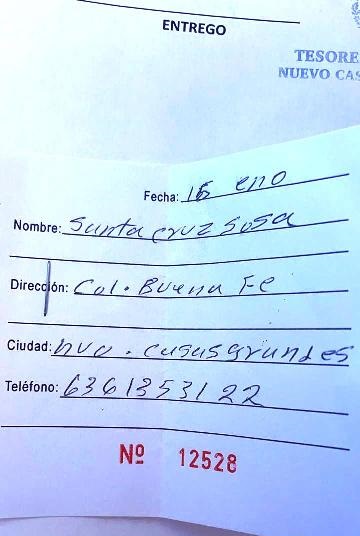 ENTREGO
TESORE
NUEVO CAS
Fecha: 16 eno
Nombre: Santa cruz Sosa
Dirección: Col. Buena Fe
Ciudad: nvo. casas grandes
Teléfono: 6361353122
Nº 12528